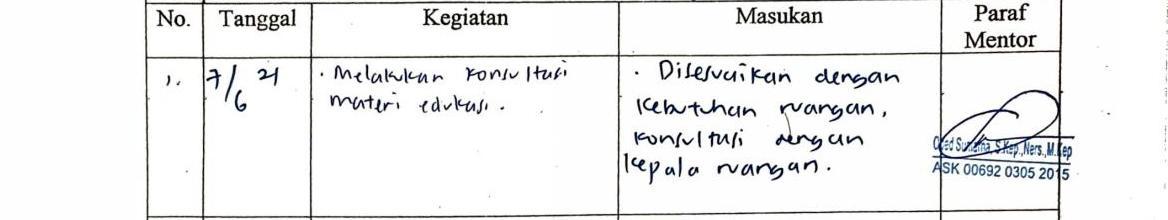 No. Tanggal Kegiatan Masukan Paraf Mentor
1. 7/6 21 · Melakukan konsultasi · Disesuaikan dengan
materi edukasi. kebutuhan ruangan,
konsultasi dengan
kepala ruangan.
S.Kep.,Ners.,M.Kep
ASK 00692 0305 2015